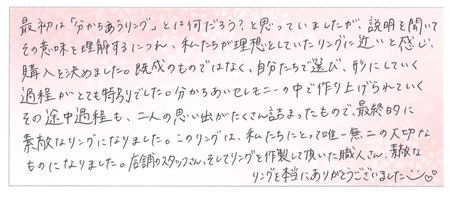 最初は「分かちあうリング」とは何だろう？と思っていましたが、説明を聞いて
その意味を理解するにつれ、私たちが理想としていたリングに近いと感じ、
購入を決めました。既成のものではなく、自分たちで選び、形にしていく
過程がとても特別でした。分かちあいセレモニーの中で作り上げられていく
その途中過程も、二人の思い出がたくさん詰まったもので、最終的に
素敵なリングになりました。このリングは、私たちにとって唯一無二の大切な
ものになりました。店舗のスタッフさん、そしてリングを作製して頂いた職人さん、素敵な
リングを本当にありがとうございました